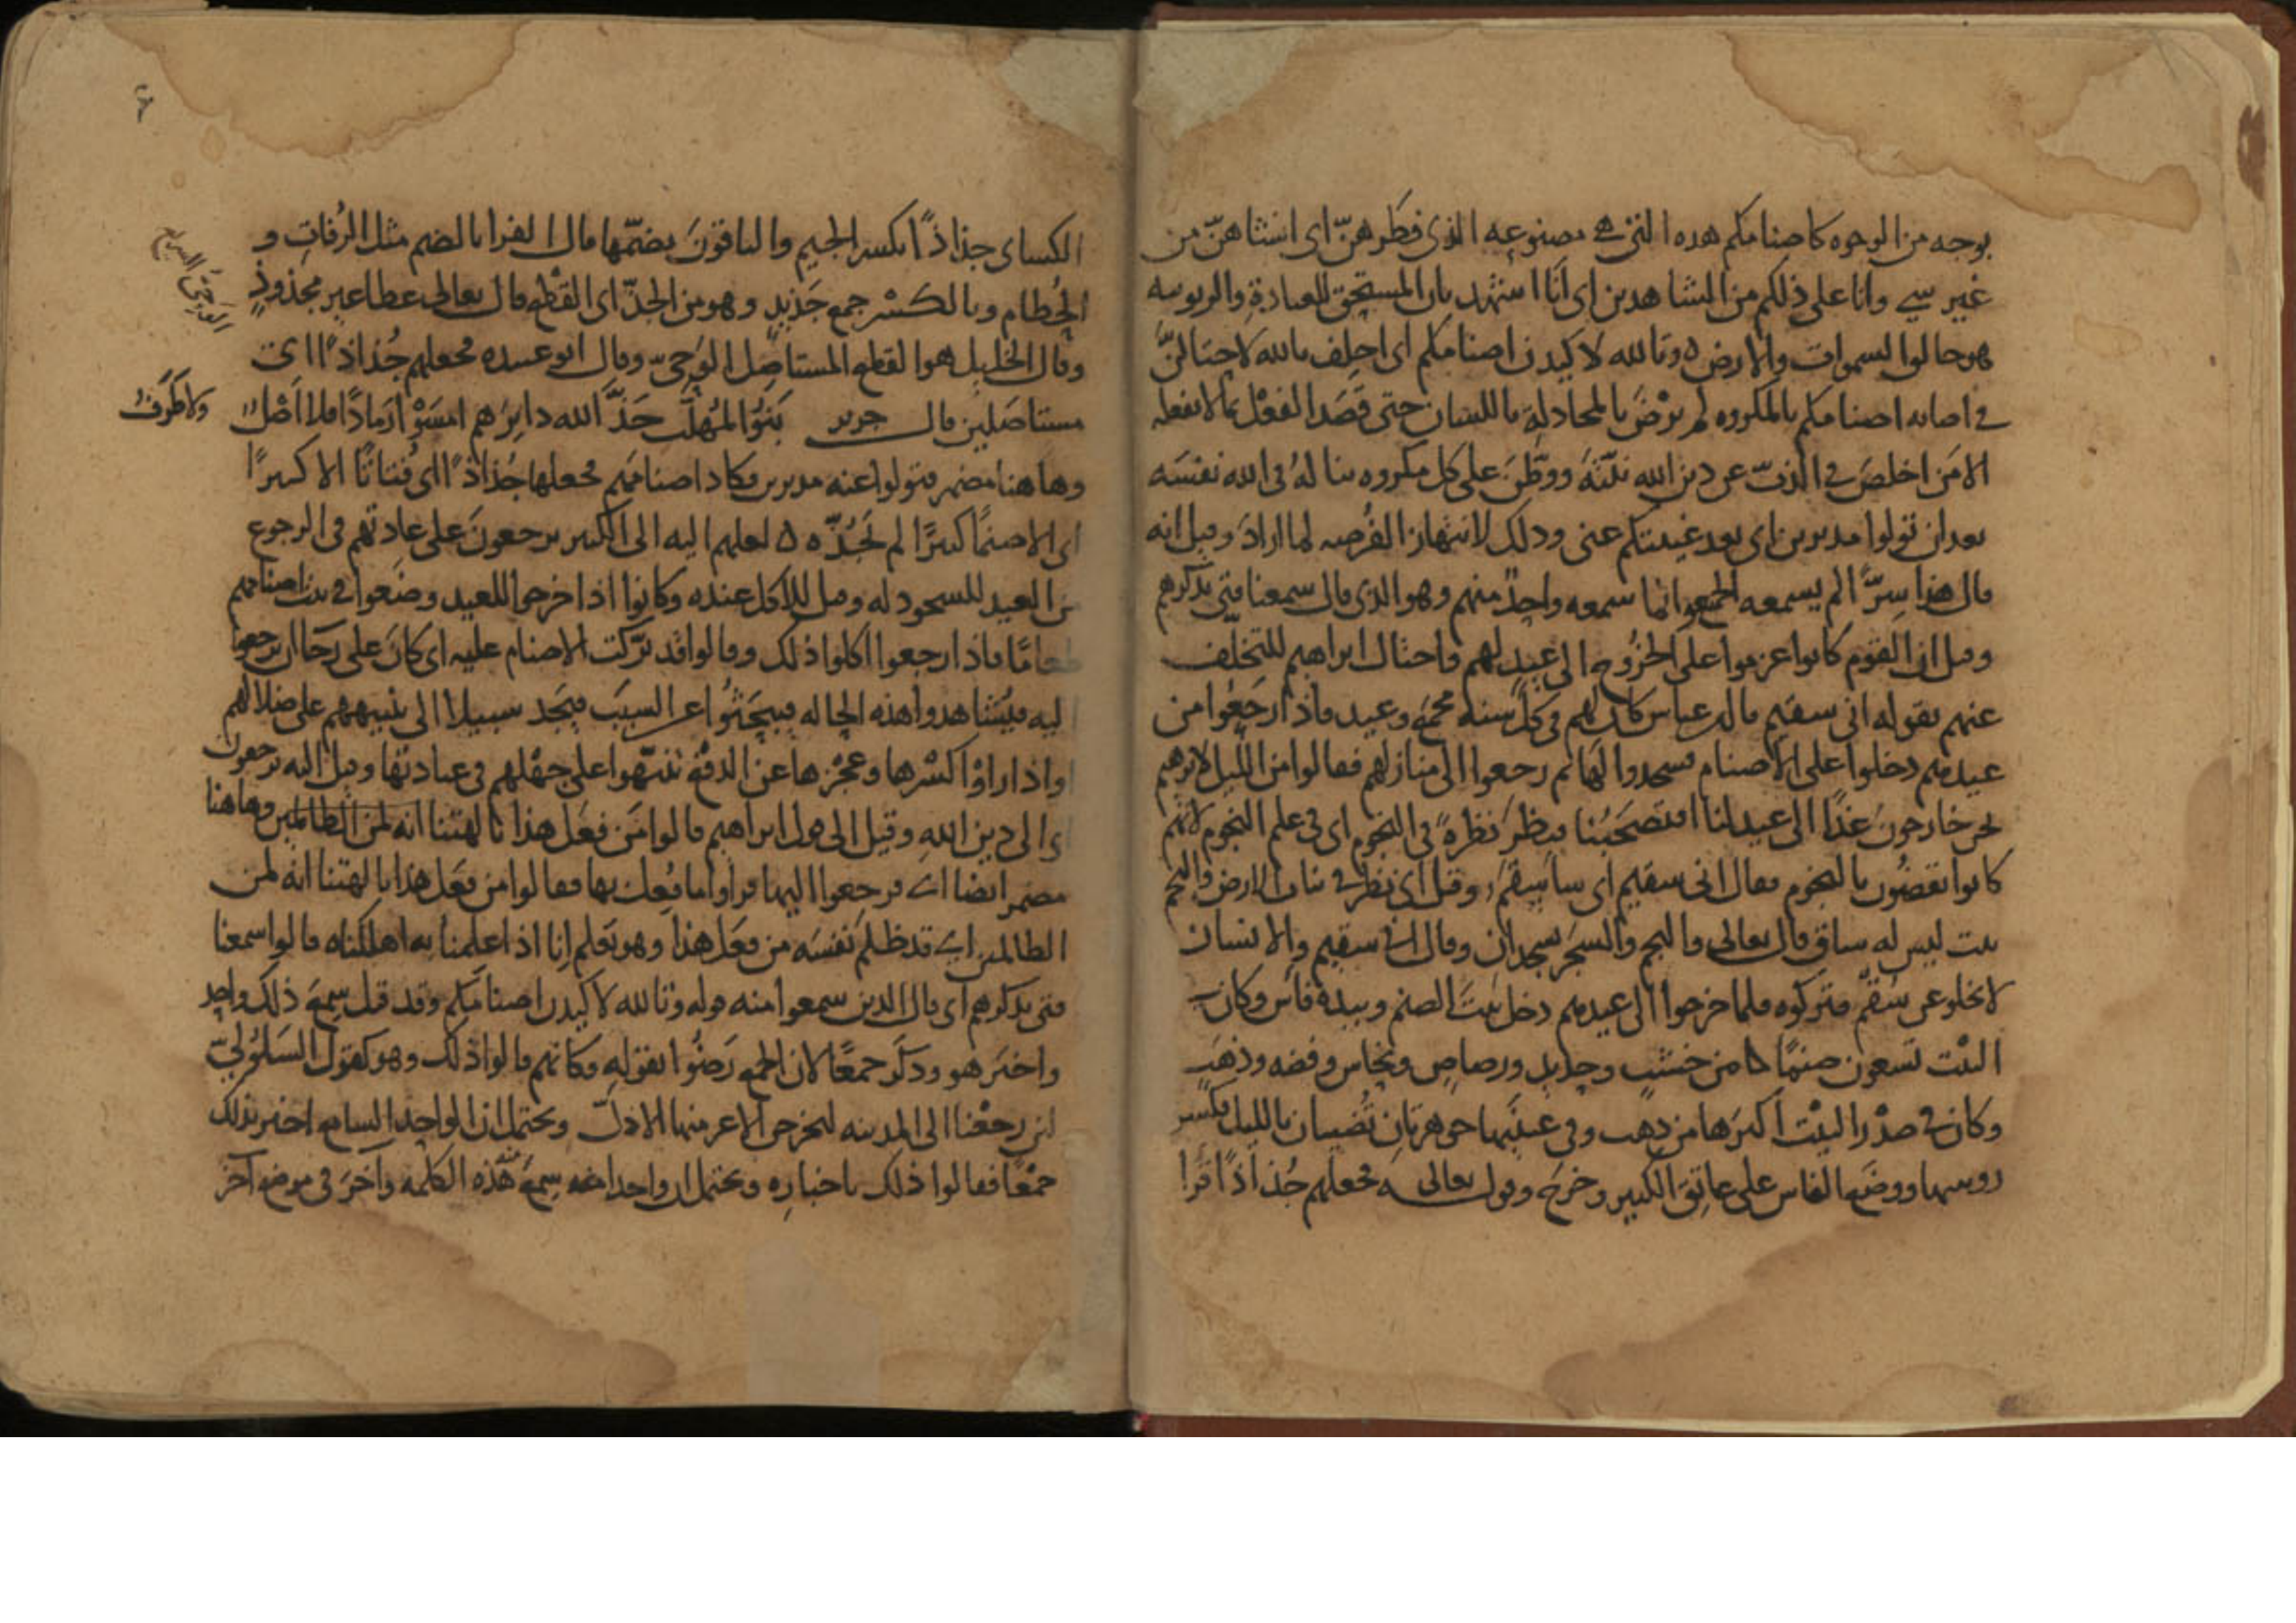 بوجه من الوجوه كاصنامكم هذه التي هي مصنوعه الذي فطرهنّ اى انشاهنّ من
غير سى وانا على ذلكم من الشاهدين اى انّا استشهد بان المستحق للعبادة والربوبيه
هو خالق السموات والارض ٥ وتالله لاكيدن اصنامكم اى احلف بالله لاحتالنّ
فى اصابه اصنامكم بالمكروه لم يرض بالمجادلة باللسان حتى قصد الفعل بما لا يفعله
الا من اخلص فى الذبّ عن دين الله نيّته ووطّن على كل مكروه يناله فى الله نفسه
بعد ان تولوا مدبرين اى بعد غيبتكم عنى وذلك لانتهاز الفرصه لما اراد وقيل انه
قال هذا سرّا لم يسمعه الجميع انما سمعه واحد منهم وهو الذى قال سمعنا فتى يذكرهم
وقيل ان القوم كانوا عزموا على الخروج الى عيد لهم فاحتال ابراهيم للتخلف
عنهم بقوله انى سقيم قال ابن عباس كان لهم فى كل سنة مجمع وعيد فاذا رجعوا من
عيدهم دخلوا على الاصنام فسجدوا لها ثم رجعوا الى منازلهم فقالوا من الليل لابرهيم
نحن خارجون غدا الى عيد لنا افتصحبنا فنظر نظرة فى النجوم اى فى علم النجوم لانهم
كانوا يقضون بالنجوم فقال انى سقيم اى ساسقم وقيل اى نظر فى نبات الارض والنجم
نبت ليس له ساق قال تعالى والنجم والشجر يسجدان وقال انى سقيم والانسان
لا يخلو عن سقم فتركوه فلما خرجوا الى عيدهم دخل بيت الصنم وبيده فاس وكان فى
البيت تسعون صنما من خشب وحديد ورصاص ونحاس وفضه وذهب
وكان فى صدر البيت اكبرها من ذهب وفى عينيها جوهرتان تضيان بالليل فكسر
روسها ووضع الفاس على عاتق الكبير وخرج وقوله تعالى فجعلهم جذاذا قرا
الكساى جذاذا بكسر الجيم والباقون بضمّها قال الفرا بالضم مثل الرفات و
الحطام وبالكسر جمع جذيذ وهو من الجذّ اى القطع قال تعالى عطا غير مجذوذ
وقال الخليل هو القطع المستاصل الوحىّ وقال ابو عبيده فجعلهم جذاذا اى
مستاصلين قال جرير بنو المهلّب جذّ الله دابرهم امسوا رمادا فلا اصل
ولا طرف
وهاهنا مضمر فتولوا عنه مدبرين فكاد اصنامهم فجعلها جذاذا اى فتاتا الا كبيرا
اى الا صنما كبيرا لم يجذّه ٥ لعلهم اليه الى الكبير يرجعون على عادتهم فى الرجوع
من العيد للسجود له وقيل للاكل عنده وكانوا اذا خرجوا للعيد وضعوا فى بيت اصنامهم
طعاما فاذا رجعوا اكلوا ذلك وقالوا قد بركت الاصنام عليه اى كان على رجا ان يرجعوا
اليه فيشاهدوا هذه الحاله فيبحثوا عن السبب فيجد سبيلا الى تنبيههم على ضلالهم
واذا راوا كسرها وعجزها عن الدفع تنبّهوا على جهلهم فى عبادتها وقيل اليه يرجعون
اى الى دين الله وقيل الى قول ابراهيم قالوا من فعل هذا بالهتنا انه لمن الظالمين وهاهنا
مضمر ايضا اى فرجعوا اليها فراوا ما فعل بها فقالوا من فعل هذا بالهتنا انه لمن
الظالمين اى قد ظلم نفسه من فعل هذا وهو يعلم انا اذا علمنا به اهلكناه قالوا سمعنا
فتى يذكرهم اى قال الذين سمعوا منه قوله وتالله لاكيدن اصنامكم وقد قيل سمع ذلك واحد
واخبر هو وذكر جمعا لان الجمع رضوا بقوله فكانهم قالوا ذلك وهو كقول السلولىّ
لئن رجعنا الى المدينه ليخرجن الاعز منها الاذلّ ويحتمل ان الواحد السامع اخبر بذلك
جمعا فقالوا ذلك باخباره ويحتمل ان واحدا سمع هذه الكلمه واخر فى موضع اخر